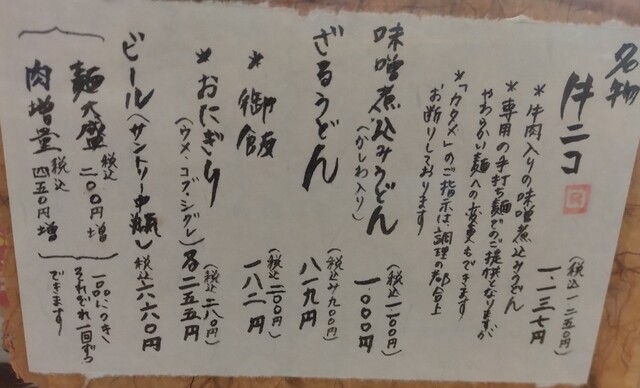 名物
牛ニコ
(税込一二五〇円)
一、一三七円
*牛肉入りの味噌煮込みうどん
*専用の手打ち麺でのご提供となりますが
やわらかい麺への変更もできます
*「カタメ」のご指示は調理の都合上
お断りしております
味噌煮込みうどん
(かしわ入り)
(税込一一〇〇円)
一、〇〇〇円
ざるうどん
(税込み九〇〇円)
八一九円
*御飯
(税込二〇〇円)
一八二円
*おにぎり
(ウメ・コブ・シグレ)
(税込二八〇円)
各二五五円
ビール(サントリー中瓶)
税込六六〇円
麺大盛 税込二〇〇円増
肉増量 税込四五〇円増
一品につき
それぞれ一回ずつ
できます